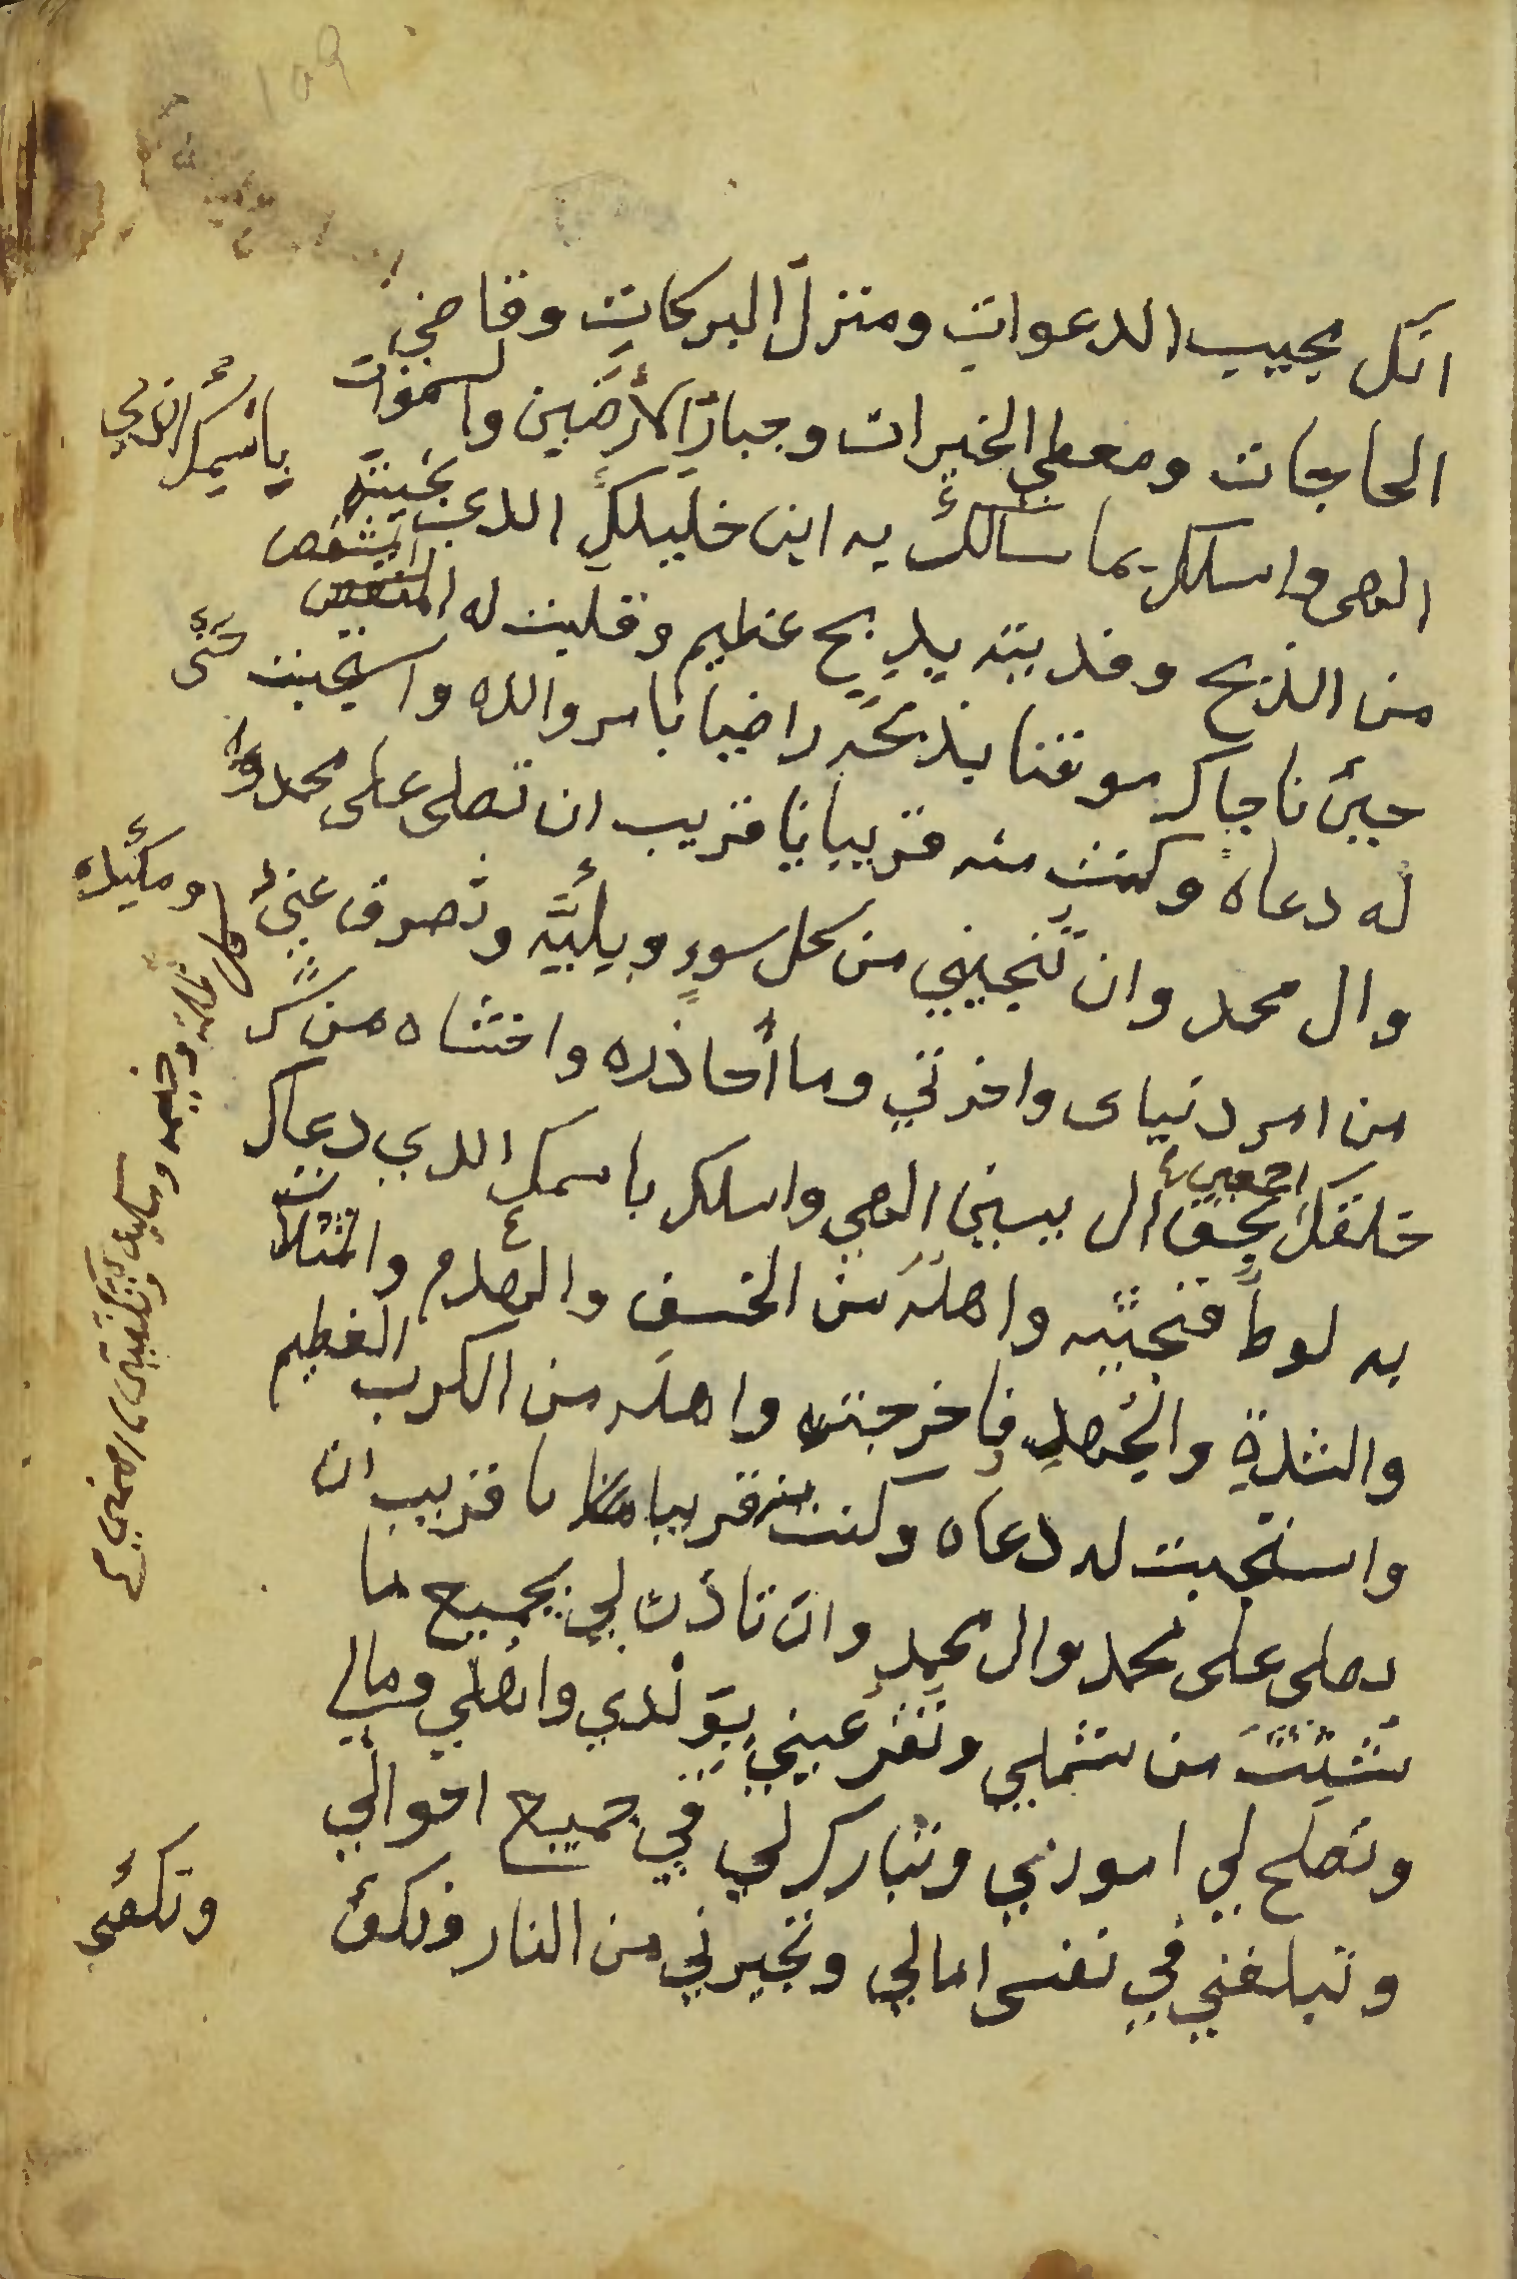 انك مجيب الدعوات ومنزل البركات وقاضي
الحاجات ومعطي الخيرات وجبار الأرضين والسموات
الهى واسلك بما سألك به ابن خليلك الذي نجيته
باسمك الذي
من الذبح وفديته بذبح عظيم وقلبت له المشقص
حين ناجاك موقنا بذبحه راضيا بامر والده واستجبت
له دعاه وكنت منه قريبا يا قريب ان تصلى على محمد
وال محمد وان تنجيني من كل سوء وبلية وتصرف عني
من امر دنياى واخرتي وما أحاذره واخشاه من شر
خلقك اجمعين بحق ال يسين الهي واسلك باسمك الذي دعاك
به لوطا فنجيته واهله من الخسف والهدم والمثلات
والشدة والجهد فاخرجته واهله من الكرب العظيم
واستجبت له دعاه وكنت منه قريبا يا قريب ان
تصلى على محمد وال محمد وان تاذن لي بجميع ما
شتت من شملي وتقر عيني بولدي واهلي ومالي
وتصلح لي اموري وتبارك لي في جميع احوالي
وتبلغني في نفسى امالي وتجيرني من النار
وتكفني